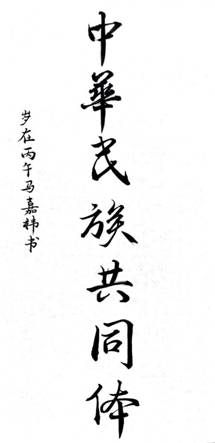 中華民族共同体
岁在丙午马嘉袆书